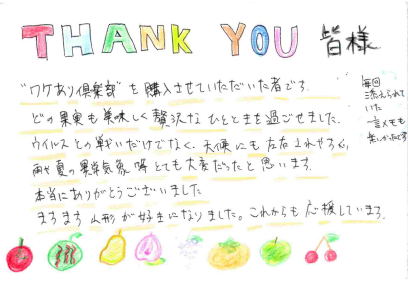 THANK YOU 皆様
"ワケあり倶楽部"を購入させていただいた者です。
どの果実も美味しく贅沢なひとときを過ごせました。
ウイルスとの戦いだけでなく、天候にも左右されやすく、
雨や夏の異常気象等とても大変だったと思います。
本当にありがとうございました
ますます山形が好きになりました。これからも応援しています。
毎回
添えられて
いた
一言メモも
楽しかったです